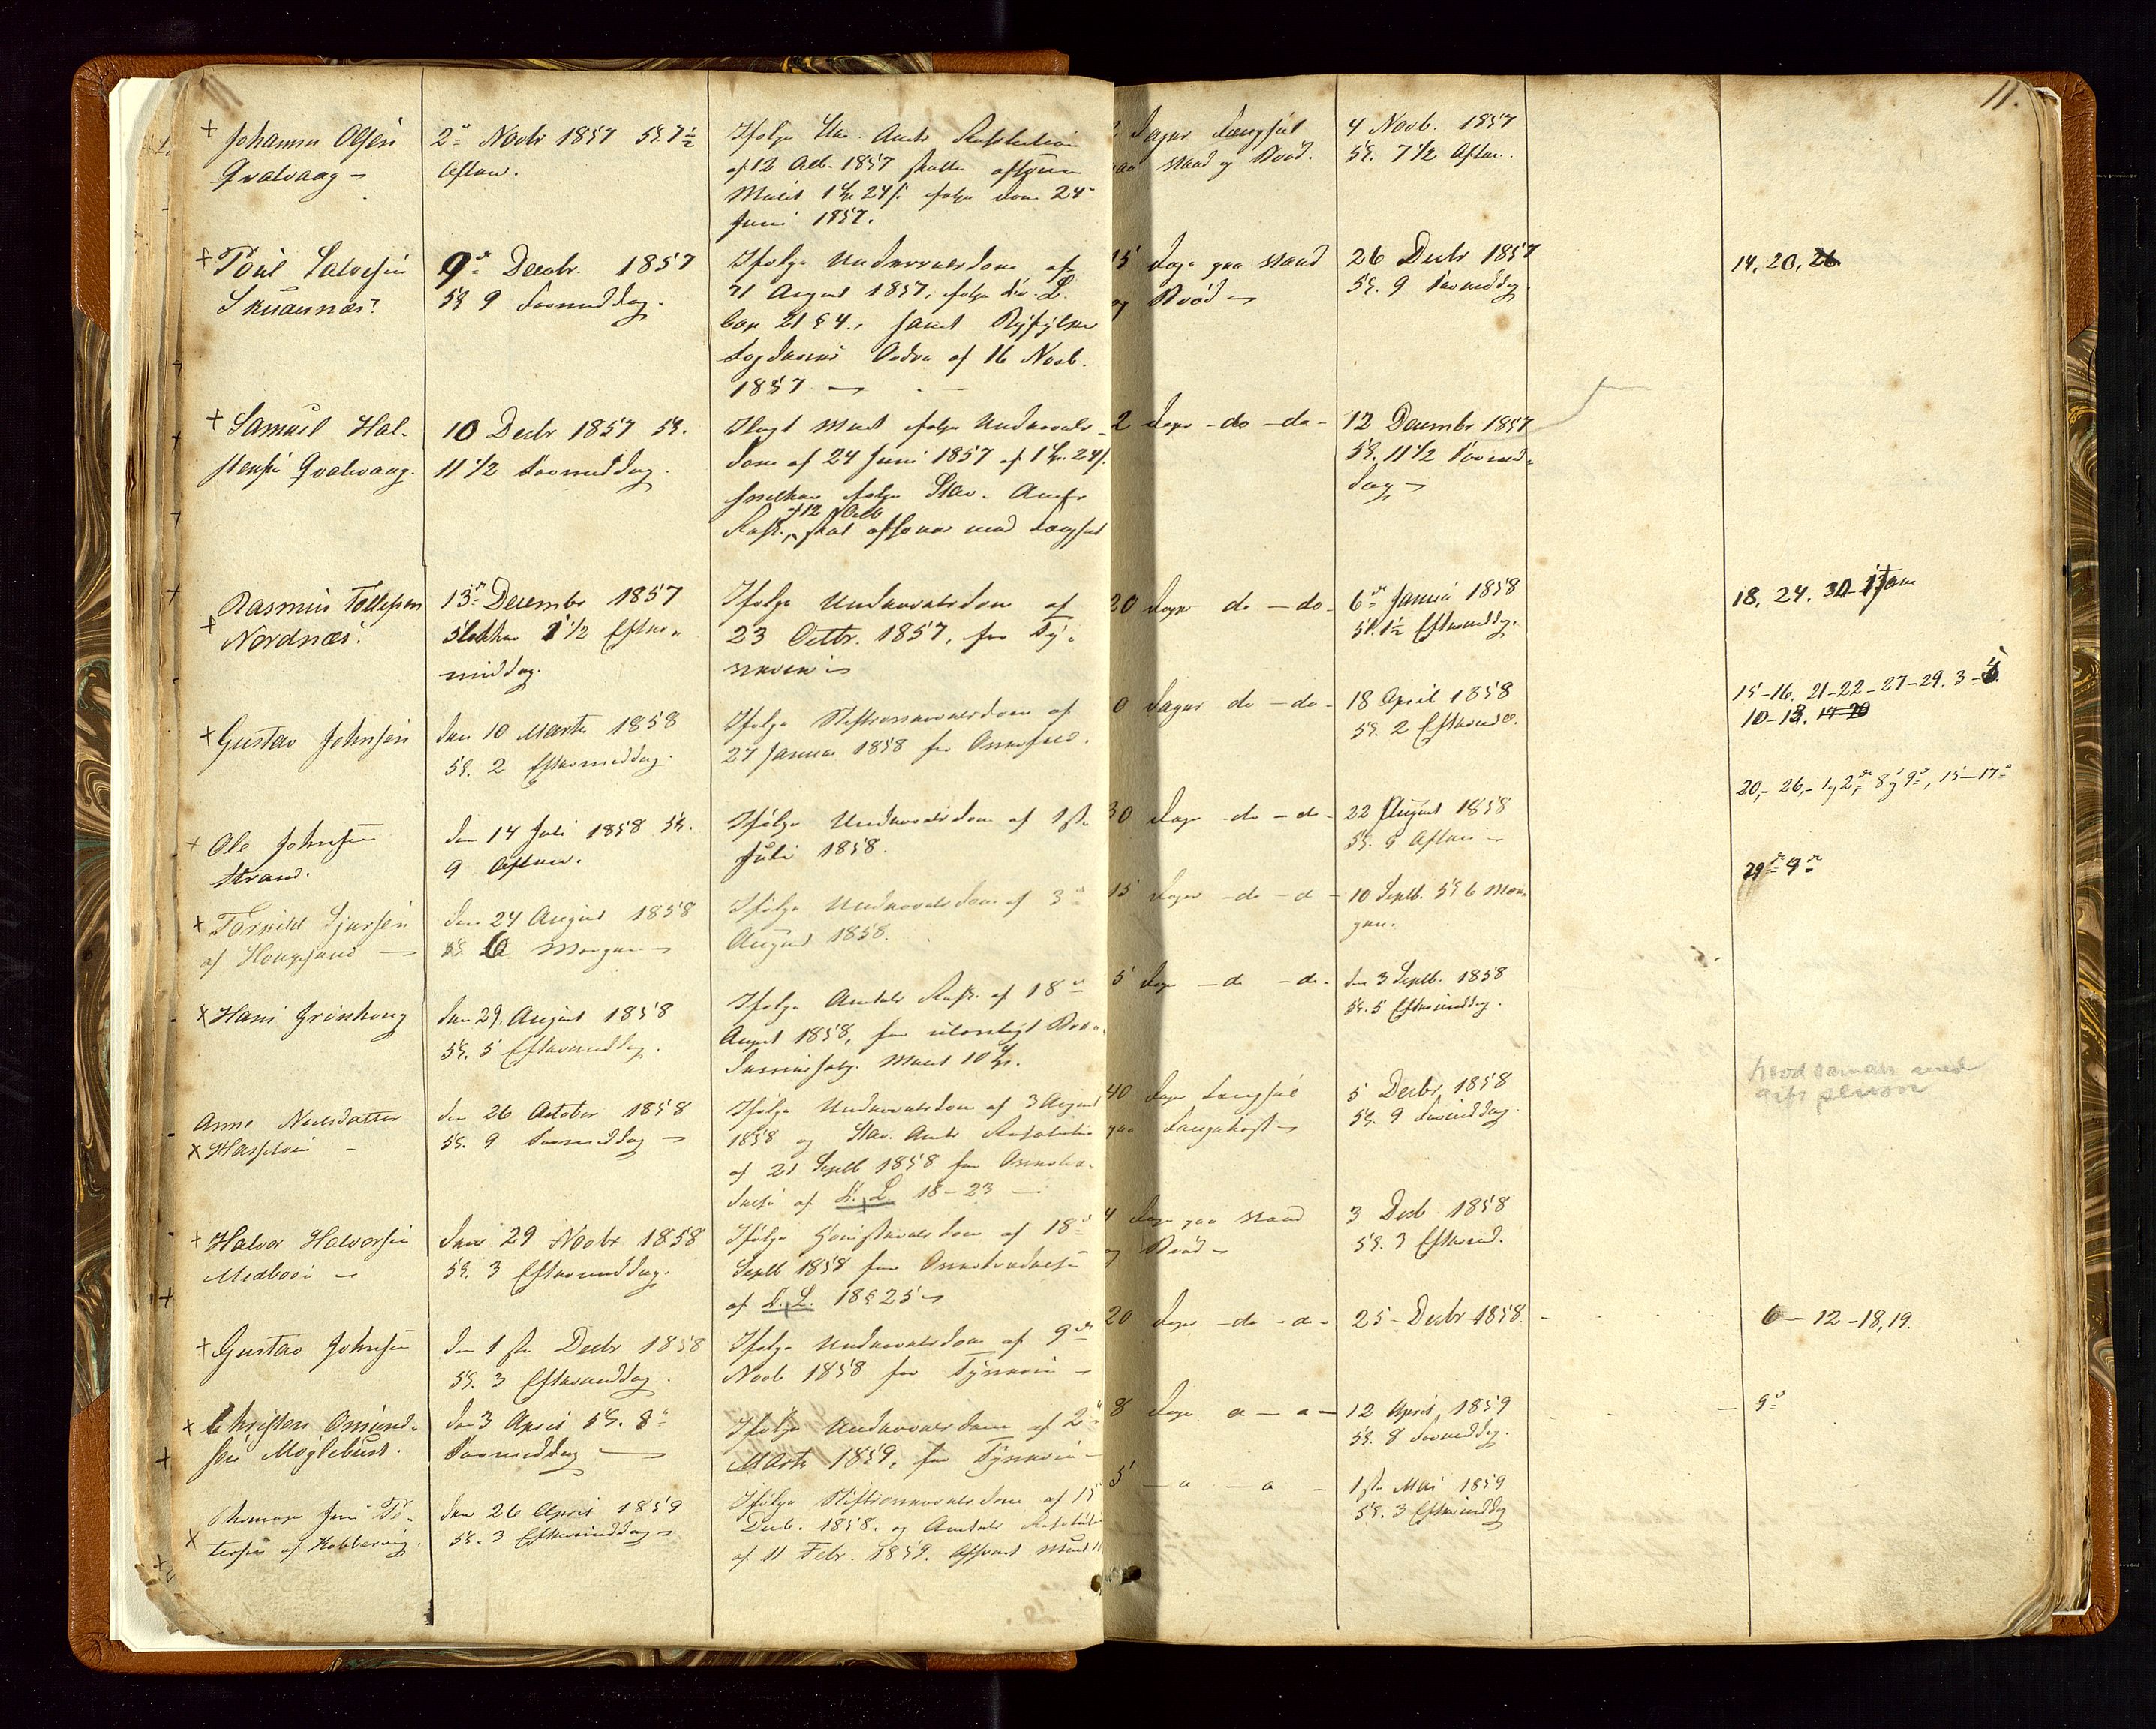 11.
+ Johannes Olsen
Qvalvaag –
2den Novbr 1857 Kl. 7½
Aften.
Ifølge Stav. Amts Resolution
af 12 Octb. 1857 afsone
Mulct 1 24 ß ifølge Dom 24
Juni 1857.
2 Dages Fængsel
paa Vand og Brød.
4 Novb. 1857
Kl. 7 1/2 Aften.
+ Poul Salvesen
Skudesnæs.
9de Decbr. 1857
Kl 9 Formiddag.
Ifølge Underretsdom af
21 August 1857, ifølge Kr. L.
Cap 21 § 4, samt Ryfylke
Fogderies Ordre af 16 Novb.
1857 –
15 Dage paa Vand
og Brød –
26 Decbr 1857
Kl. 9 Formiddag.
14, 20, 26
+ Samuel Hal-
Qvalvaag.
10 Decbr 1857 Kl.
11 1/2 Formiddag.
Mulct ifølge Underrets-
dom af 24 Juni 1857 af 1 24 ß.
ifølge Stav. Amts
af 12 Octb
Res., skal afsones med Fængsel
2 Dage – do – do –
12 Decembr 1857
Kl. 11 1/2 Formid-
dag –
+ Rasmus Tollefsen
Nordnæs.
13de Decembr 1857
Klokken 1 1/2 Efter-
middag.
Ifølge Underretsdom af
23 Octbr. 1857, for Ty-
verie –
20 Dage do – do –
6te Januar 1858
Kl. 1½ Eftermiddag.
18, 24, 30
+ Gustav Johnsen
den 10 Marts 1858
Kl. 2 Eftermiddag.
Ifølge Stiftsoverretsdom af
27 Januar 1858 for
Dages do – do –
18 April 1858
Kl. 2 Eftermid.
15–16. 21–22–27–29. 3–4
10–13. 19 20
+ Ole Johnsen
Strand.
den 14 Juli 1858 Kl.
9 Aften.
Ifølge Underretsdom af 1ste
Juli 1858.
30 Dage – do – do –
22 August 1858
Kl. 9 Aften –
20, – 26, – 1 og 2den 8 og 9de, 15–17de
+ Sjursen
af Hougesund –
den 24 August 1858
Kl 6 Morgen –
Ifølge Underretsdom af 3die
August 1858.
15 Dage – do – a –
10 Septb. Kl 6 Mor-
gen.
29de 4de
+ Hans Grindhoug
den 29. August 1858
Kl. 5 Eftermiddag.
Ifølge Amtets Res. af 18de
August 1858, for ulovligt Bræn-
deviinsalg. Mulct 10 Spd.
5 Dage – do – do –
den 3 Septb. 1858
Kl. 5 Eftermiddag.
Anne Nielsdatter
+
den 26 October 1858
Kl. 9 Formiddag –
Ifølge Underretsdom af 3 August
1858 og Stav. Amts Resolution
af 21 Septb 1858 for Overtræ-
delse af L. L. 18–23 –
40 Dage Fængsel
paa Fangekost –
5 Decbr, 1858
Kl. 9 Formiddag.
hoed med
gift person
+ Halvor Halvorsen
Medboe –
den 29 Novbr 1858
Kl. 3 Eftermiddag.
Ifølge af 18de
Septb 1858 for Overtrædelse
af L. L. 18 § 25 –
4 Dage paa Vand
og Brød –
3 Decb 1858
Kl. 3 Eftermid.
+ Gustav Johnsen
den 1ste Decbr 1858
Kl. 3 Eftermiddag.
Ifølge Underretsdom af 9de
Novb 1858 for Tyverie –
20 Dage – do – a –
25 – Decbr 1858.
6 – 12 – 18, 19.
+ Christen Osmund-
sen Møglebust.
den 3 April Kl. 8
Formiddag –
Ifølge Underretsdom af 2den
Marts 1859, for Tyverie –
8 Dage a – a –
12 April 1859
Kl. 8 Formiddag.
– 9de
+ Jens Pe-
tersen af
den 26 April 1859
Kl. 3 Eftermiddag –
Ifølge Stiftsoverretsdom af 15
Decb. 1858. og Amtets Resolution
af 11 Febr. 1859. Afsone Mulct
5 – a – a –
1ste Mai 1859
Kl. 3 Eftermiddag